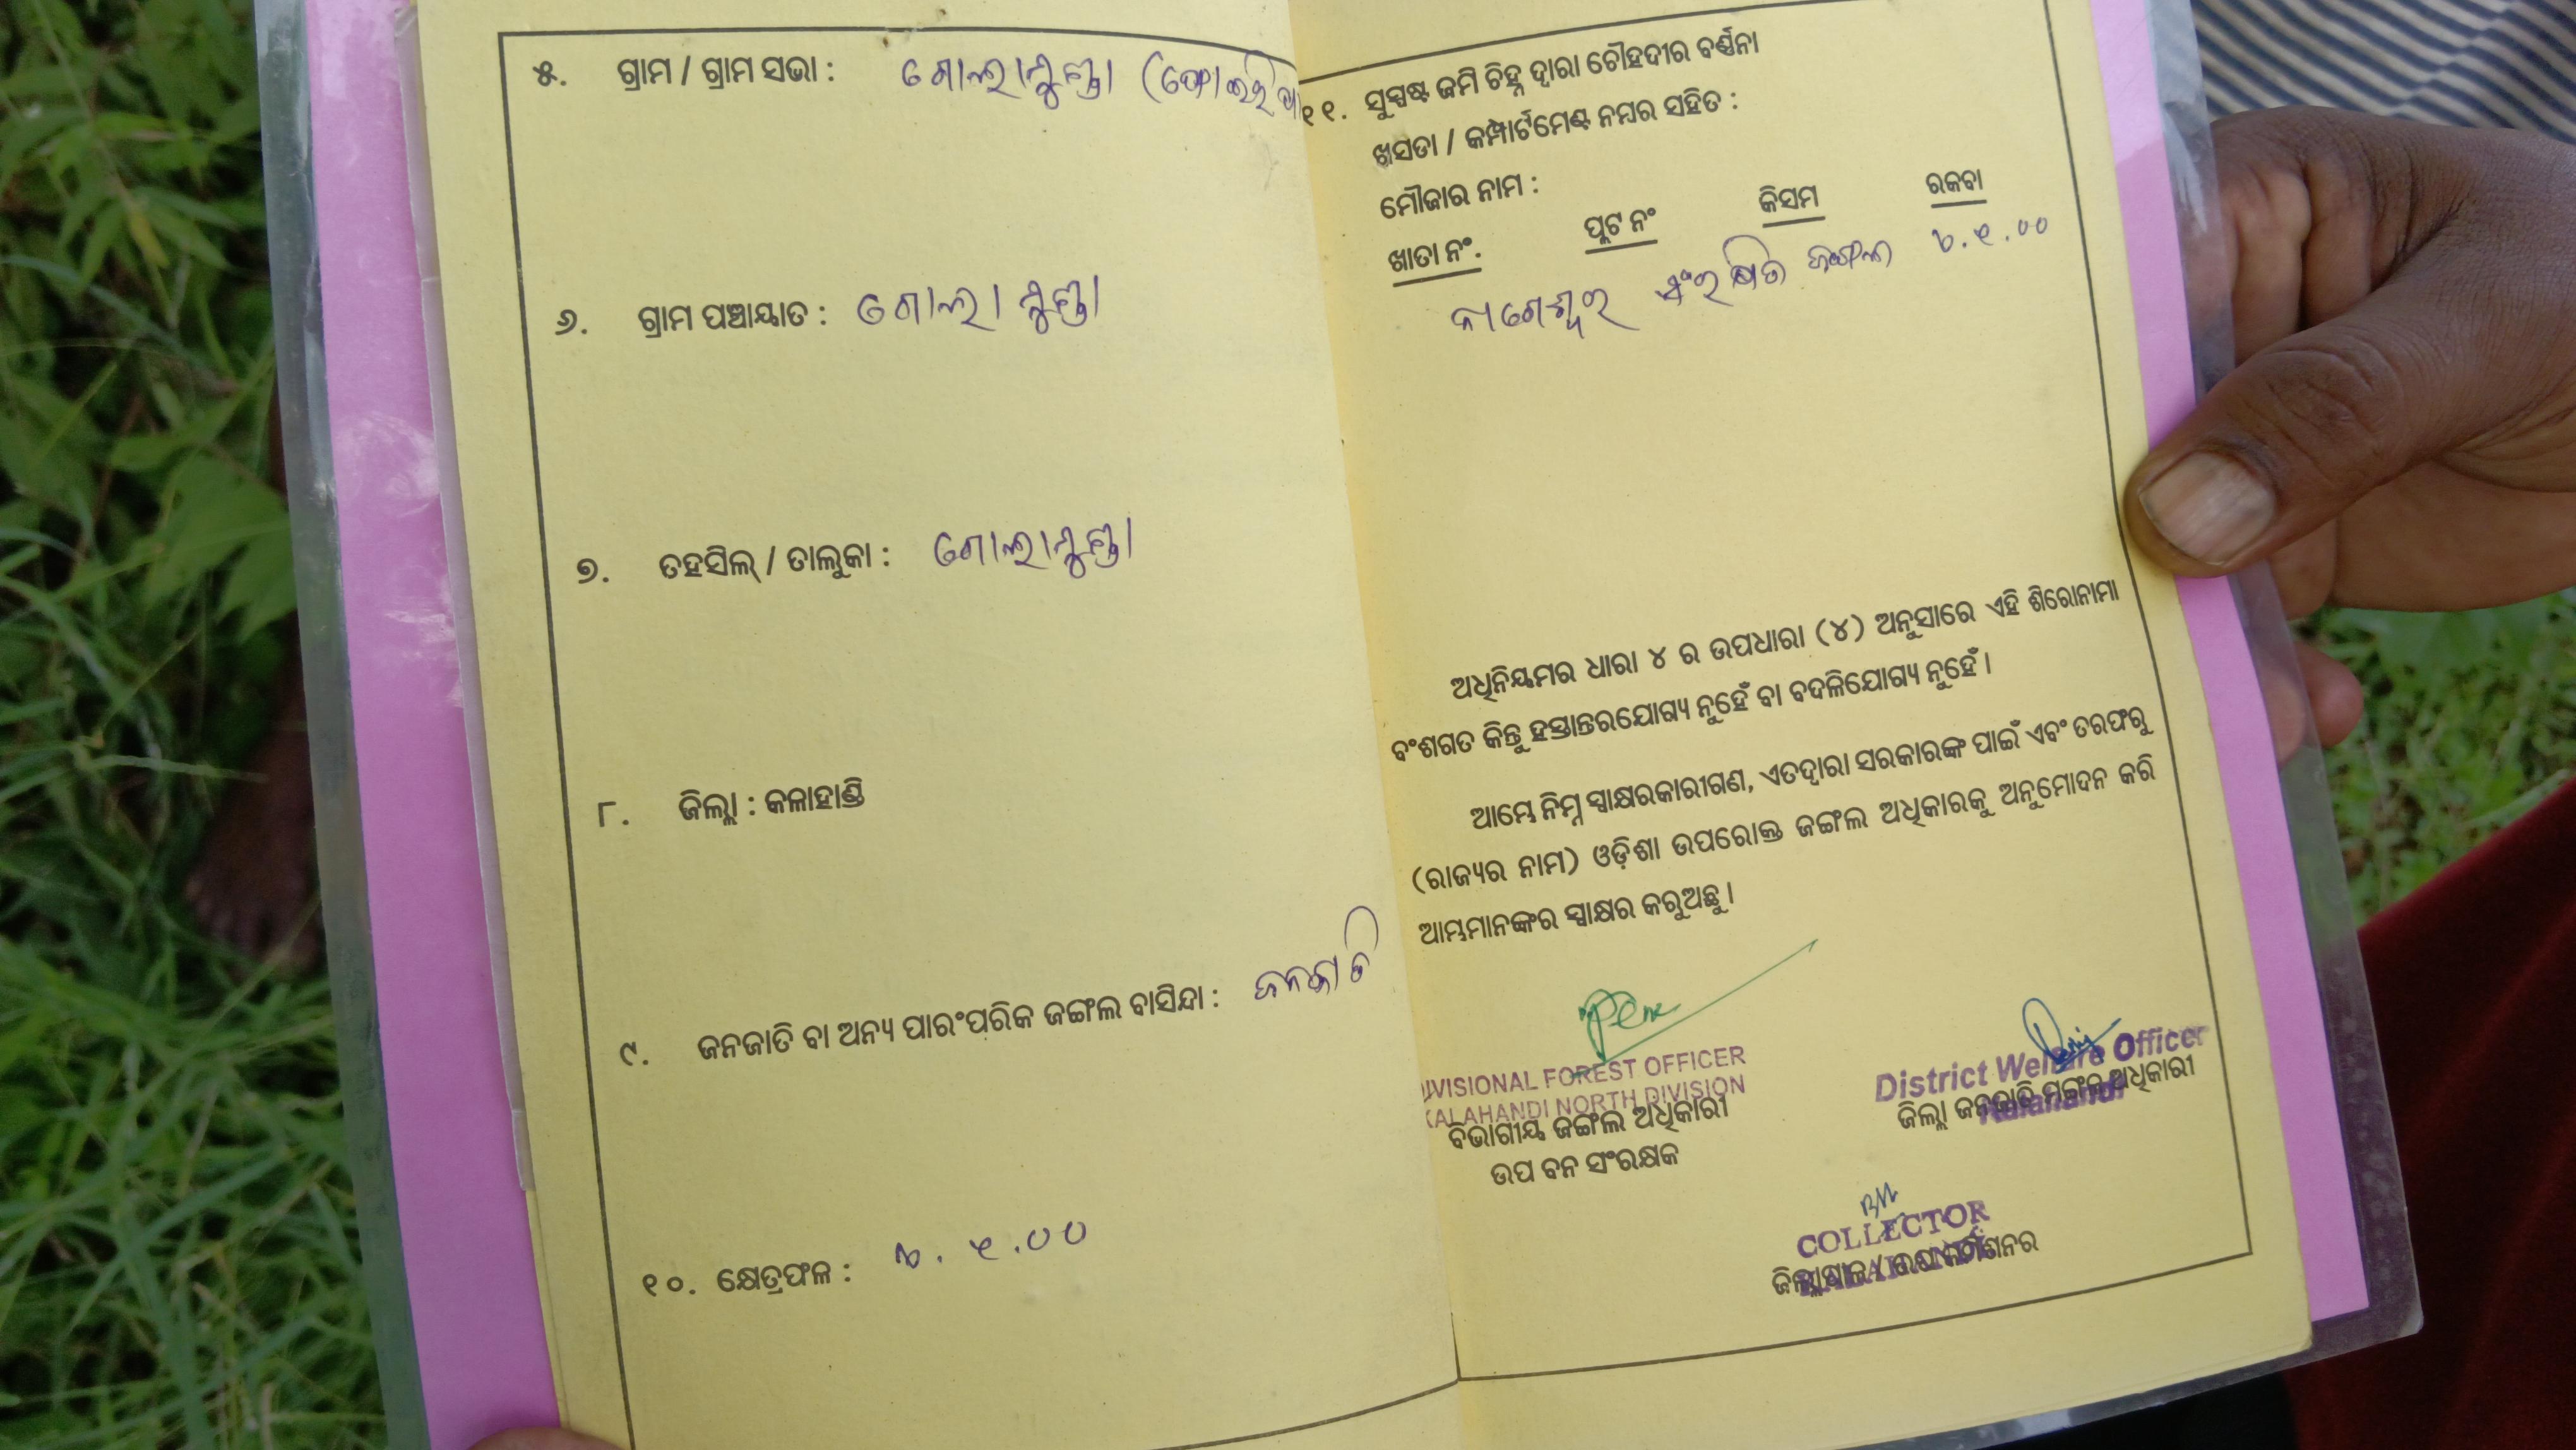 ୫. ଗ୍ରାମ / ଗ୍ରାମ ସଭା : ଗୋଲାମୁଣ୍ଡା
୬. ଗ୍ରାମ ପଞ୍ଚାୟାତ : ଗୋଲାମୁଣ୍ଡା
୭. ତହସିଲ୍ / ତାଲୁକା : ଗୋଲାମୁଣ୍ଡା
୮. ଜିଲ୍ଲା : କଳାହାଣ୍ଡି
୯. ଜନଜାତି ବା ଅନ୍ୟ ପାରଂପରିକ ଜଙ୍ଗଲ ବାସିନ୍ଦା : ଜନଜାତି
୧୦. କ୍ଷେତ୍ରଫଳ : ୧.୦୦
୧୧. ସୁସ୍ପଷ୍ଟ ଜମି ଚିହ୍ନ ଦ୍ଵାରା ଚୌହଦୀର ବର୍ଣ୍ଣନା
ଖସଡା / କମ୍ପାର୍ଟମେଣ୍ଟ ନମ୍ବର ସହିତ :
ମୌଜାର ନାମ :
ଖାତା ନଂ. ପ୍ଲଟ ନଂ କିସମ ରକବା
ସଂରକ୍ଷିତ ଜଙ୍ଗଲ ୧.୦୦
ଅଧିନିୟମର ଧାରା ୪ ର ଉପଧାରା (୪) ଅନୁସାରେ ଏହି ଶିରୋନାମା
ବଂଶଗତ କିନ୍ତୁ ହସ୍ତାନ୍ତରଯୋଗ୍ୟ ନୁହେଁ ବା ବଦଳିଯୋଗ୍ୟ ନୁହେଁ ।
ଆମ୍ଭେ ନିମ୍ନ ସ୍ୱାକ୍ଷରକାରୀଗଣ, ଏତଦ୍ୱାରା ସରକାରଙ୍କ ପାଇଁ ଏବଂ ତରଫରୁ
(ରାଜ୍ୟର ନାମ) ଓଡ଼ିଶା ଉପରୋକ୍ତ ଜଙ୍ଗଲ ଅଧିକାରକୁ ଅନୁମୋଦନ କରି
ଆମ୍ଭମାନଙ୍କର ସ୍ୱାକ୍ଷର କରୁଅଛୁ ।
DIVISIONAL FOREST OFFICER
KALAHANDI NORTH DIVISION
ବିଭାଗୀୟ ଜଙ୍ଗଲ ଅଧିକାରୀ
ଉପ ବନ ସଂରକ୍ଷକ
District Welfare Officer
Kalahandi
ଜିଲ୍ଲା ଜନଜାତି ମଙ୍ଗଳ ଅଧିକାରୀ
COLLECTOR
KALAHANDI
ଜିଲ୍ଲାପାଳ / ଉପ କମିଶନର